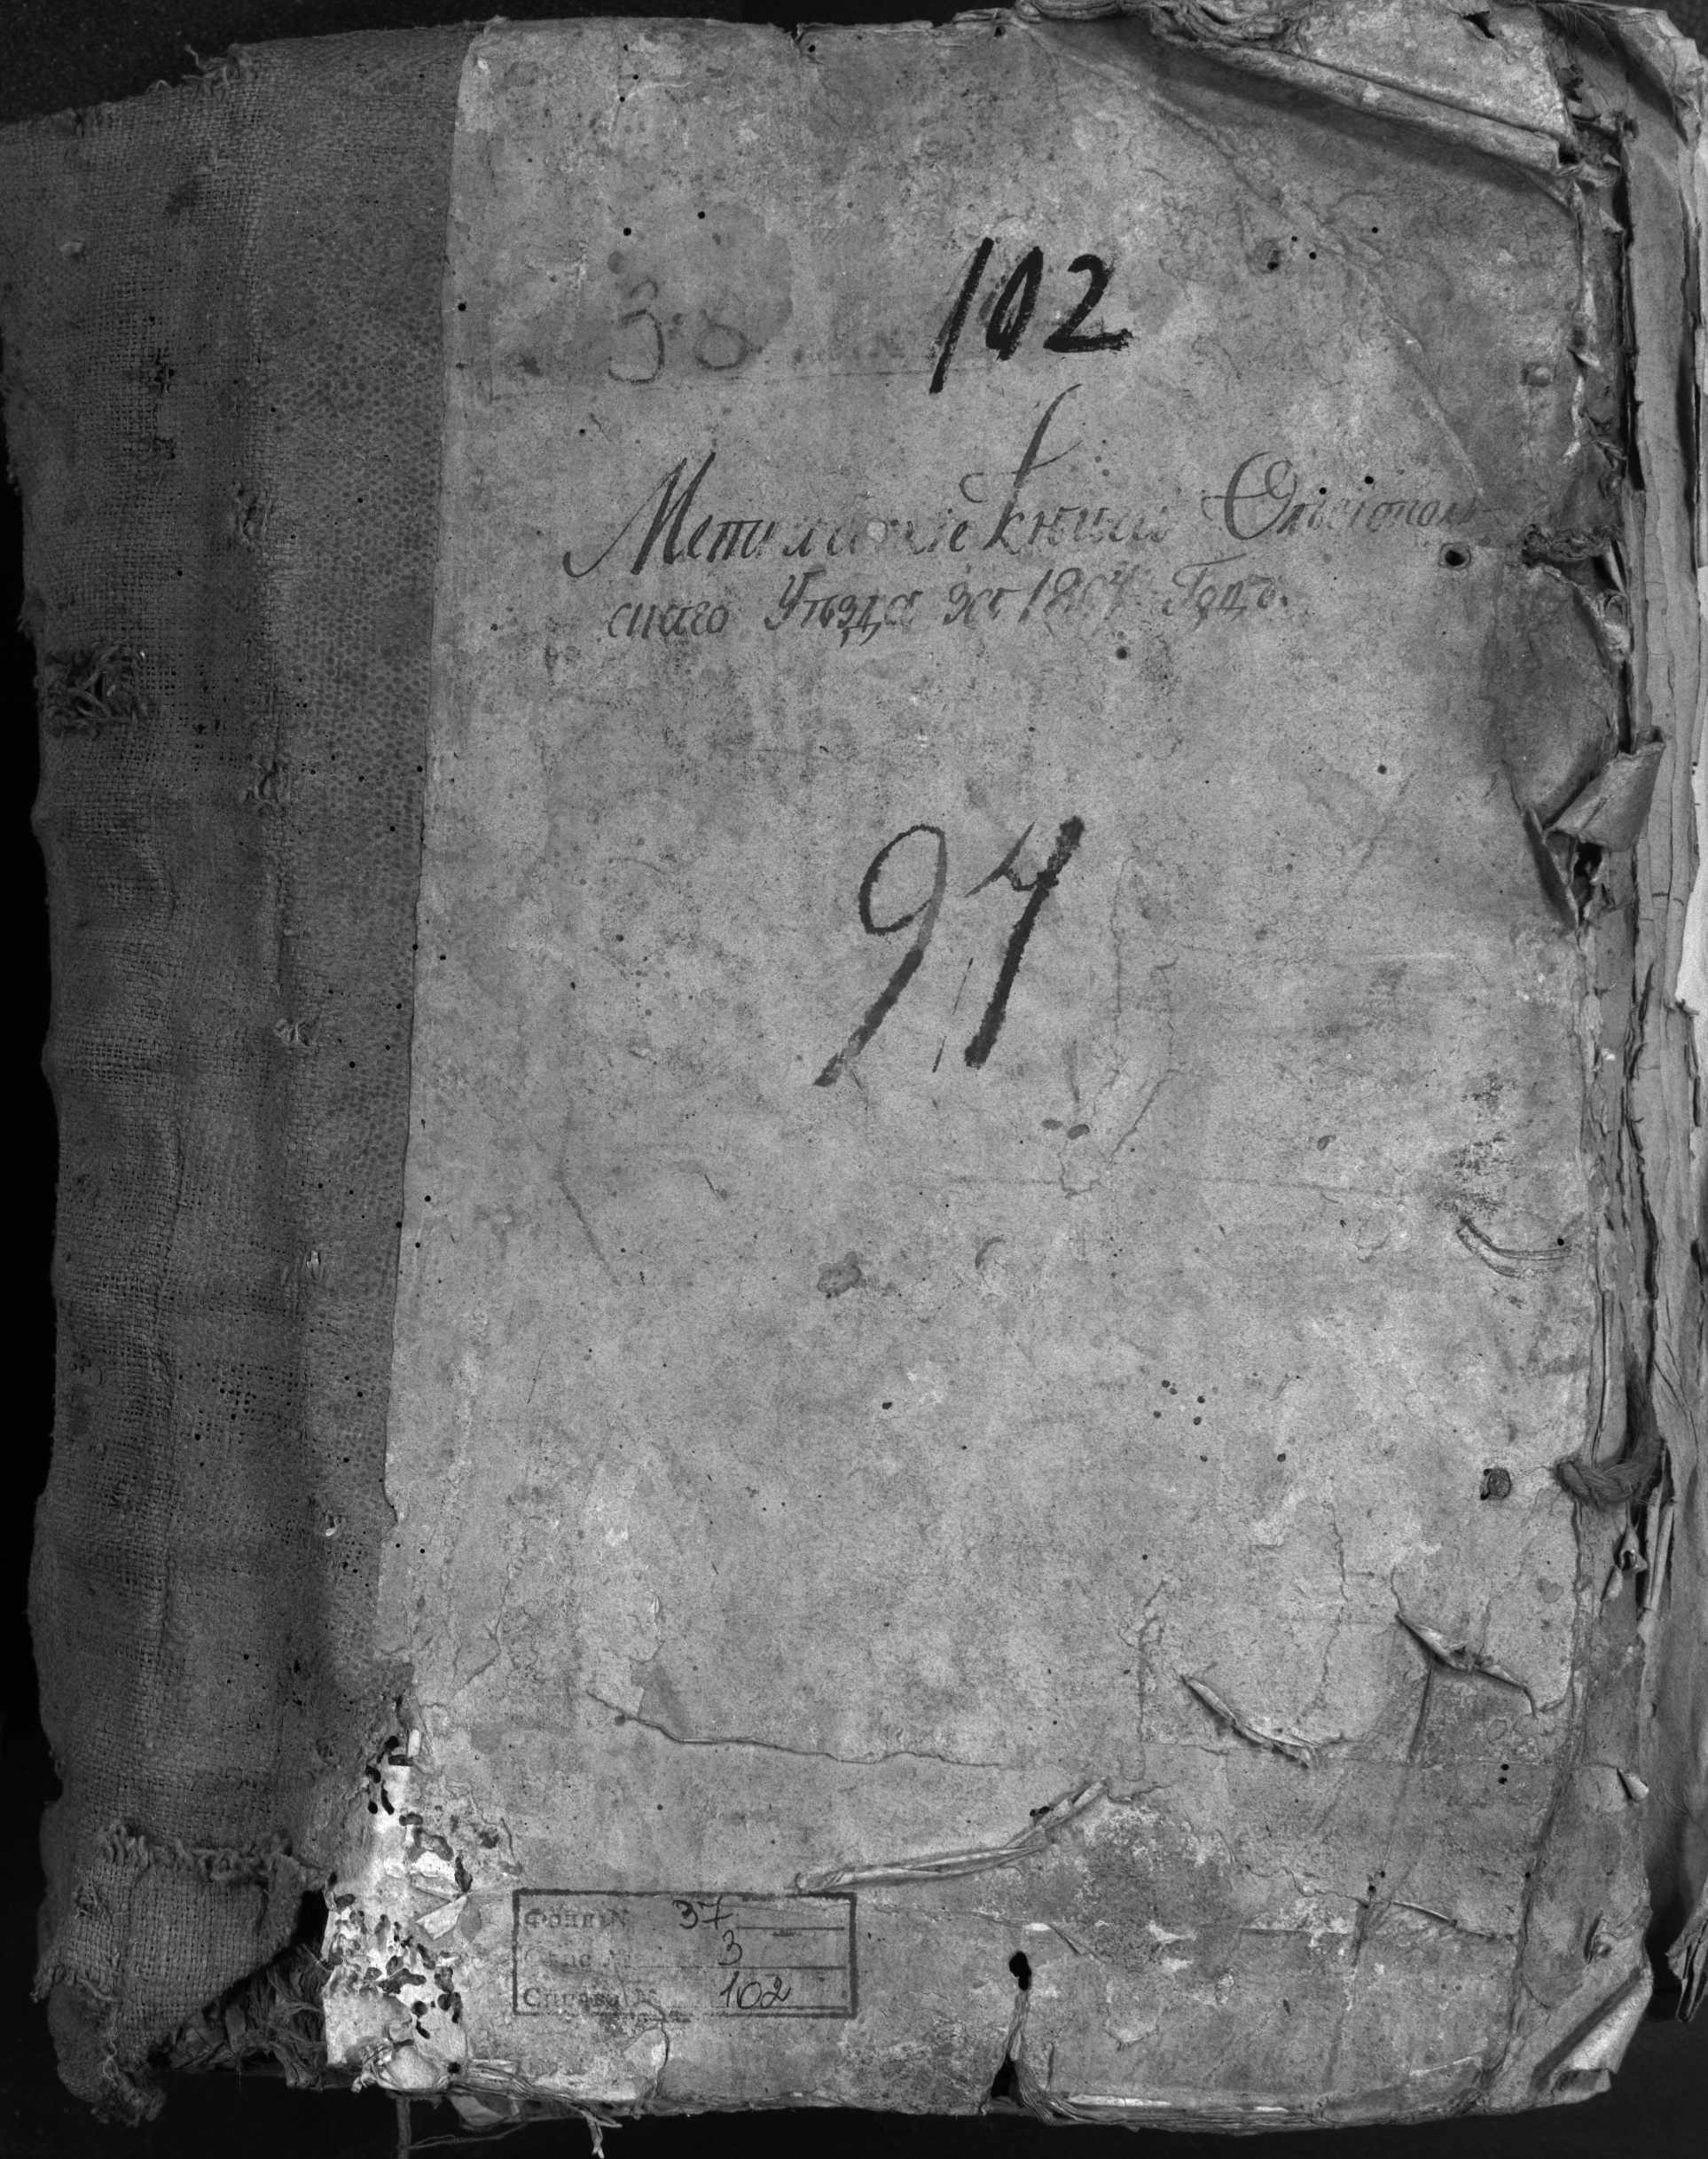 102
38
Метрическiе книги Олвiополь
скаго Уѣзда за 1804 Годъ.
94
Фонд № 37
Опис № 3
Справа № 102